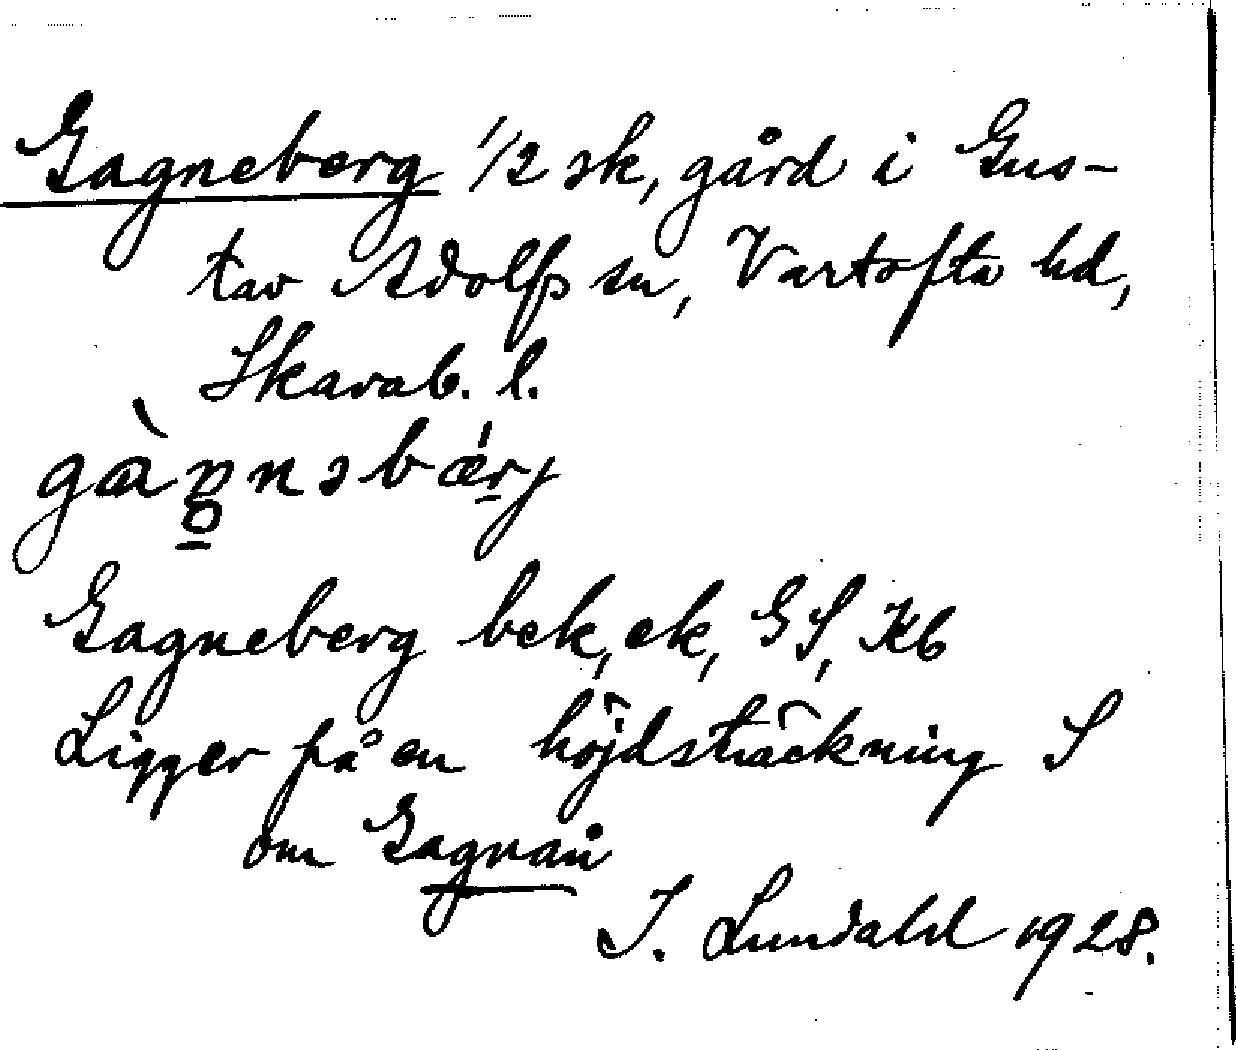 Gagneberg 1/2 sk, gård i Gus-
tav Adolfs sn, Vartofta hd,
Skarab. l.
Gagneberg bek, ek, GS, Kb
Ligger på en höjdsträckning S
om Gagnån
I. Lundahl 1928.